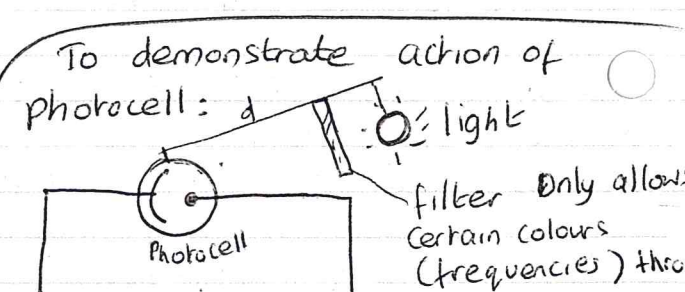 To demonstrate action of
photocell:
d
light
filter Only allows
Certain colours
(frequencies)
Photocell